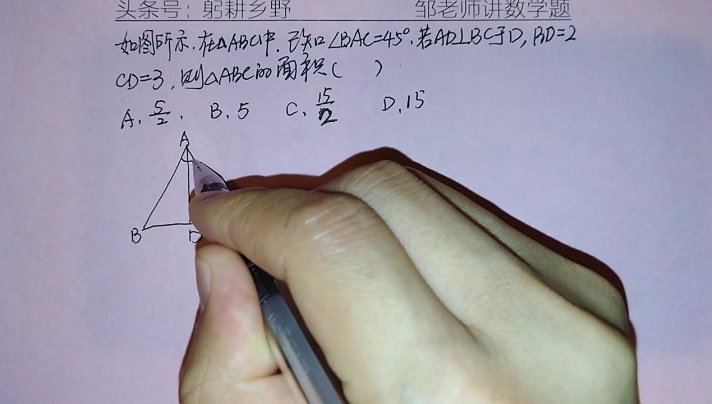 头条号：躬耕乡野 邹老师讲数学题
如图所示，在△ABC中，已知∠BAC=45°，若AD⊥BC于D，BD=2
CD=3，则△ABC的面积（ ）
A、5/2， B、5 C、15/2 D、15
A
B D